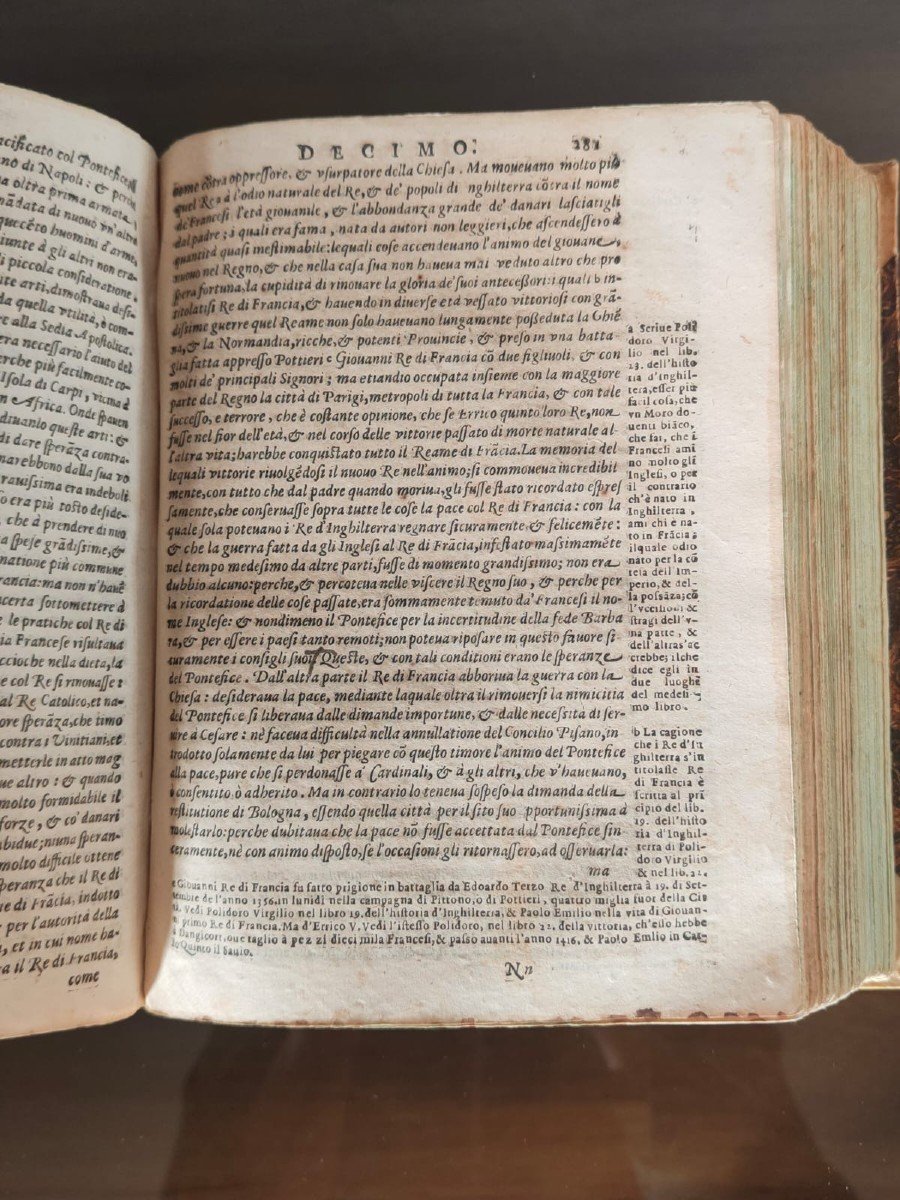 acificato col Pontefice,
no di Napoli: & perche
oltra prima armata,
mãdata di nuouo vn'altra
quecẽto huomini d'arme
iunte à gli altri non era-
li piccola consideratione.
te arti, dimostraua desi-
da quella vtilità, è com-
re alla Sedia Apostolica.
era necessario l'aiuto del
perche più facilmente co-
Isola di Carpi, vicina à
n Africa. Onde spauen
diuanlo queste arti: &
di dare sperãza contra-
narebbono dalla sua vo
rauissima era indeboli
o era più tosto deside-
che à prendere di nuo
a spese grãdissime, &
natione più comune
rancia: ma non n'hauẽ
certa sottomettere à
le pratiche col Re di
a Francese risultaua
ccioche nella dieta, la
e col Re si rinouasse:
al Re Catolico, et na-
ore sperãza, che timo
contra i Vinitiani, et
metterle in atto mag
ue altro: & quando
molto formidabile il
forze, & co' danari
bidue; niuna speran-
molto difficile ottene
peranza che il Re di
e di Frãcia, indotto
per l'autorità della
, et in cui nome ha-
ra il Re di Francia,
come
DECIMO. 281
nome cõtra oppressore, & vsurpatore della Chiesa. Ma moueuano molto più
quel Re a l'odio naturale del Re, & de' popoli di nghilterra cõtra il nome
de' Francesi l'età giouanile, & l'abbondanza grande de' danari lasciatigli
dal padre; i quali era fama, nata da autori non leggieri, che ascendessero à
quantità quasi inestimabile: lequali cose accendeuano l'animo del giouane,
nuouo nel Regno, & che nella casa sua non haueua mai veduto altro che pro
spera fortuna, la cupidità di rinouare la gloria de' suoi antecessori: i quali b in-
titolatisi Re di Francia, & hauendo in diuerse età vessato vittoriosi con grã-
dissime guerre quel Reame non solo haueuano lungamente posseduta la Ghiẽ
na, & la Normandia, ricche, & potenti Prouincie, & preso in vna batta-
glia fatta appresso Pottieri c Giouanni Re di Francia cõ due figliuoli, & con
molti de' principali Signori; ma etiandio occupata insieme con la maggiore
parte del Regno la città di Parigi, metropoli di tutta la Francia, & con tale
successo, e terrore, che è cõstante opinione, che se Errico quinto loro Re, non
fusse nel fior dell'età, & nel corso delle vittorie passato di morte naturale al-
l'altra vita; harebbe conquistato tutto il Reame di Frãcia. La memoria del-
lequali vittorie riuolgẽdosi il nuouo Re nell'animo; si commoueua incredibil
mente, con tutto che dal padre quando moriua, gli fusse stato ricordato espres
samente, che conseruasse sopra tutte le cose la pace col Re di Francia: con la
quale sola poteuano i Re d'Inghilterra regnare sicuramente & felicemẽte:
& che la guerra fatta da gli Inglesi al Re di Frãcia, infestato massimamẽte
nel tempo medesimo da altre parti, fusse di momento grandissimo; non era
dubbio alcuno: perche, & percoteua nelle viscere il Regno suo, & perche per
la ricordatione delle cose passate, era sommamente temuto da' Francesi il no-
me Inglese: & nondimeno il Pontefice per la incertitudine della fede Barba
ra, & per essere i paesi tanto remoti; non poteua riposare in questo fauore si-
curamente i consigli suoi. Queste, & con tali conditioni erano le speranze
del Pontefice. Dall'altra parte il Re di Francia abborriua la guerra con la
Chiesa: desideraua la pace, mediante laquale oltra il rimouersi la nimicitia
del Pontefice si liberaua dalle dimande importune, & dalle necessità di ser-
uire à Cesare: nè faceua difficultà nella annullatione del Concilio Pisano, in
trodotto solamente da lui per piegare cõ questo timore l'animo del Pontefice
alla pace, pure che si perdonasse a' Cardinali, & à gli altri, che v'haueuano,
ò consentito, ò adherito. Ma in contrario lo teneua sospeso la dimanda della
restitutione di Bologna, essendo quella città per il sito suo opportunissima à
molestarlo: perche dubitaua che la pace nõ fusse accettata dal Pontefice sin-
ceramente, nè con animo disposto, se l'occasioni gli ritornassero, ad osseruarla:
ma
a Scriue Poli
doro Virgi-
lio nel lib.
23. dell'histo
ria d'Inghil-
terra, esser più
facil cosa, che
vn Moro do-
uenti biãco,
che fai, che i
Francesi ami
no molto gli
Inglesi, o per
il contrario
ch'è nato in
Inghilterra,
ami chi è na-
to in Frãcia:
ilquale odio
nato per la cõ
tesa dell'Im-
perio, & del-
la possãza; cõ
l'vccisioni &
stragi dell'v-
na parte, &
dell'altra s'ac
crebbe; ilche
dice egli in
due luoghi
del medesi-
mo libro.
b La cagione
che i Re d'In
ghilterra s'in
titolasse Re
di Francia è
scritta al prĩ
cipio del lib.
19. dell'histo
ria d'Inghil-
terra di Poli-
doro Virgilio
& nel lib. 22.
c Giouanni Re di Francia fu fatto prigione in battaglia da Edoardo Terzo Re d'Inghilterra à 19. di Set-
tembre de l'anno 1356. in lunedì nella campagna di Pittono, o di Pottieri, quattro miglia fuor della Cit
tà. Vedi Polidoro Virgilio nel libro 19. dell'historia d'Inghilterra, & Paolo Emilio nella vita di Giouan-
ni primo Re di Francia. Ma d'Errico V. Vedi l'istesso Polidoro, nel libro 22. della vittoria, ch'esso hebbe
à Dangicort, oue taglio à pez zi dieci mila Francesi, & passo auanti l'anno 1416. & Paolo Emilio in Car-
lo Quinto il Sauio.
Nn